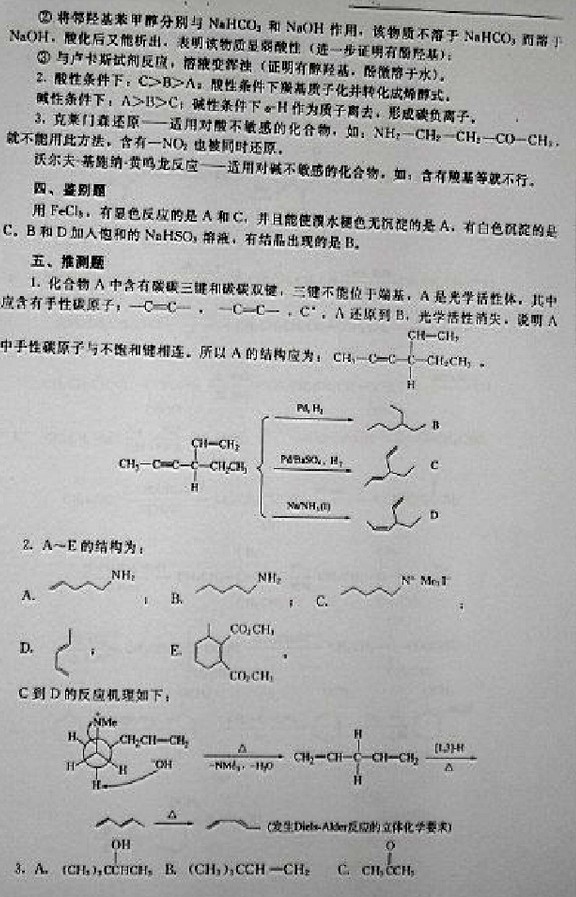 ② 将邻羟基苯甲醇分别与 NaHCO₃ 和 NaOH 作用，该物质不溶于 NaHCO₃ 而溶于
NaOH，酸化后又能析出，表明该物质显弱酸性（进一步证明有酚羟基）；
③ 与卢卡斯试剂反应，溶液变浑浊（证明有醇羟基，酚微溶于水）。
2. 酸性条件下：C>B>A；酸性条件下羰基质子化并转化成烯醇式。
碱性条件下：A>B>C；碱性条件下α-H 作为质子离去，形成碳负离子。
3. 克莱门森还原——适用对酸不敏感的化合物，如：NH₂—CH₂—CH₂—CO—CH₃，
就不能用此方法，含有—NO₂ 也被同时还原。
沃尔夫-基施纳-黄鸣龙反应——适用对碱不敏感的化合物，如：含有羧基等就不行。
四、鉴别题
用 FeCl₃，有显色反应的是 A 和 C，并且能使溴水褪色无沉淀的是 A，有白色沉淀的是
C。B 和 D 加入饱和的 NaHSO₃ 溶液，有结晶出现的是 B。
五、推测题
1. 化合物 A 中含有碳碳三键和碳碳双键，三键不能位于端基，A 是光学活性体，其中
应含有手性碳原子，—C≡C—，—C=C—，C*，A 还原到 B，光学活性消失，说明 A
CH=CH₂
中手性碳原子与不饱和键相连。所以 A 的结构应为：CH₃—C≡C—C—CH₂CH₃。
H
Pd, H₂
B
CH=CH₂
CH₃—C≡C—C—CH₂CH₃
H
Pd/BaSO₄, H₂
C
Na/NH₃(l)
D
2. A～E 的结构为：
A. NH₂ ； B. NH₂ ； C. N⁺ Me₃I⁻ ；
D. ； E. CO₂CH₃ 。
CO₂CH₃
C 到 D 的反应机理如下：
NMe
H CH₂CH=CH₂
H H ⁻OH
H
△
-NMe₃, -H₂O
H
CH₂=CH—C—CH=CH₂
H
[1,3]-H
△
△
（发生Diels-Alder反应的立体化学要求）
OH O
3. A. (CH₃)₃CCHCH₃ B. (CH₃)₃CCH=CH₂ C. CH₃CCH₃